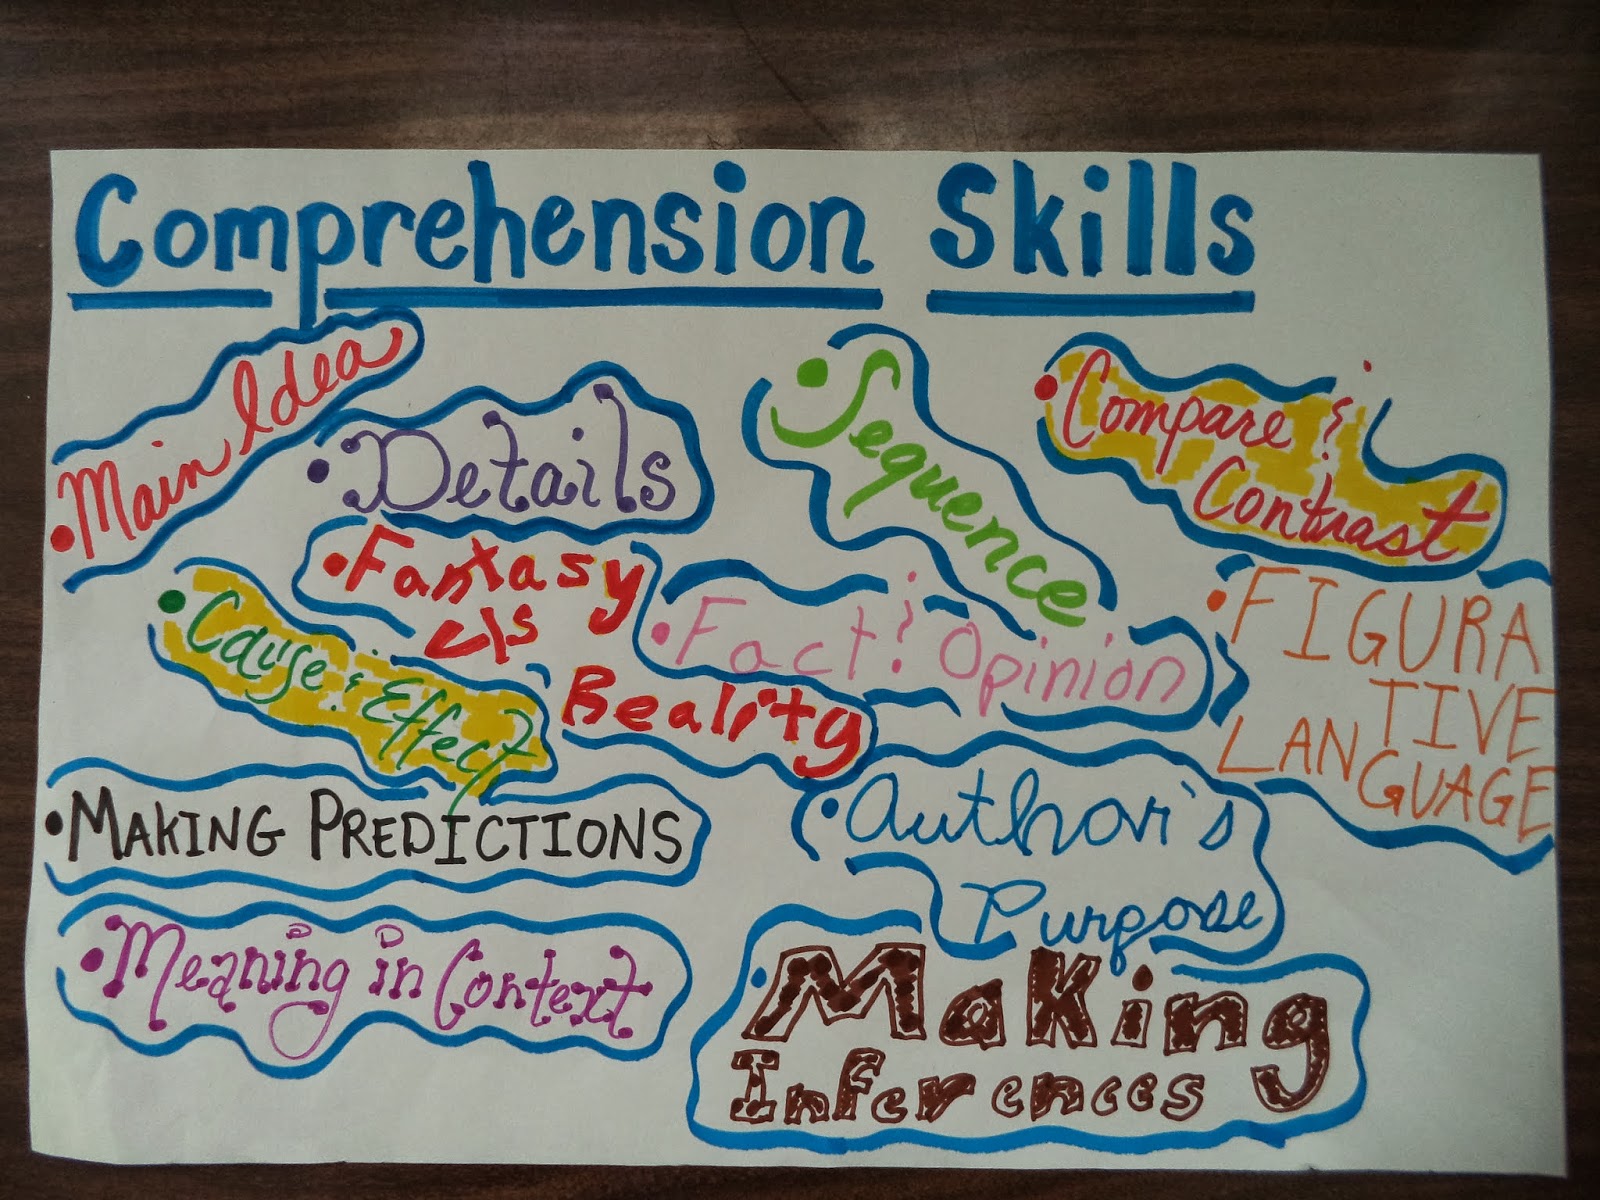 Comprehension Skills
• Main Idea
• Details
• Sequence
• Compare &
Contrast
• Fantasy
v/s
Reality
• Cause & Effect
• Fact & Opinion
• FIGURA
TIVE
LANGUAGE
• MAKING PREDICTIONS
• Author's
Purpose
• Meaning in Context
• Making
Inferences